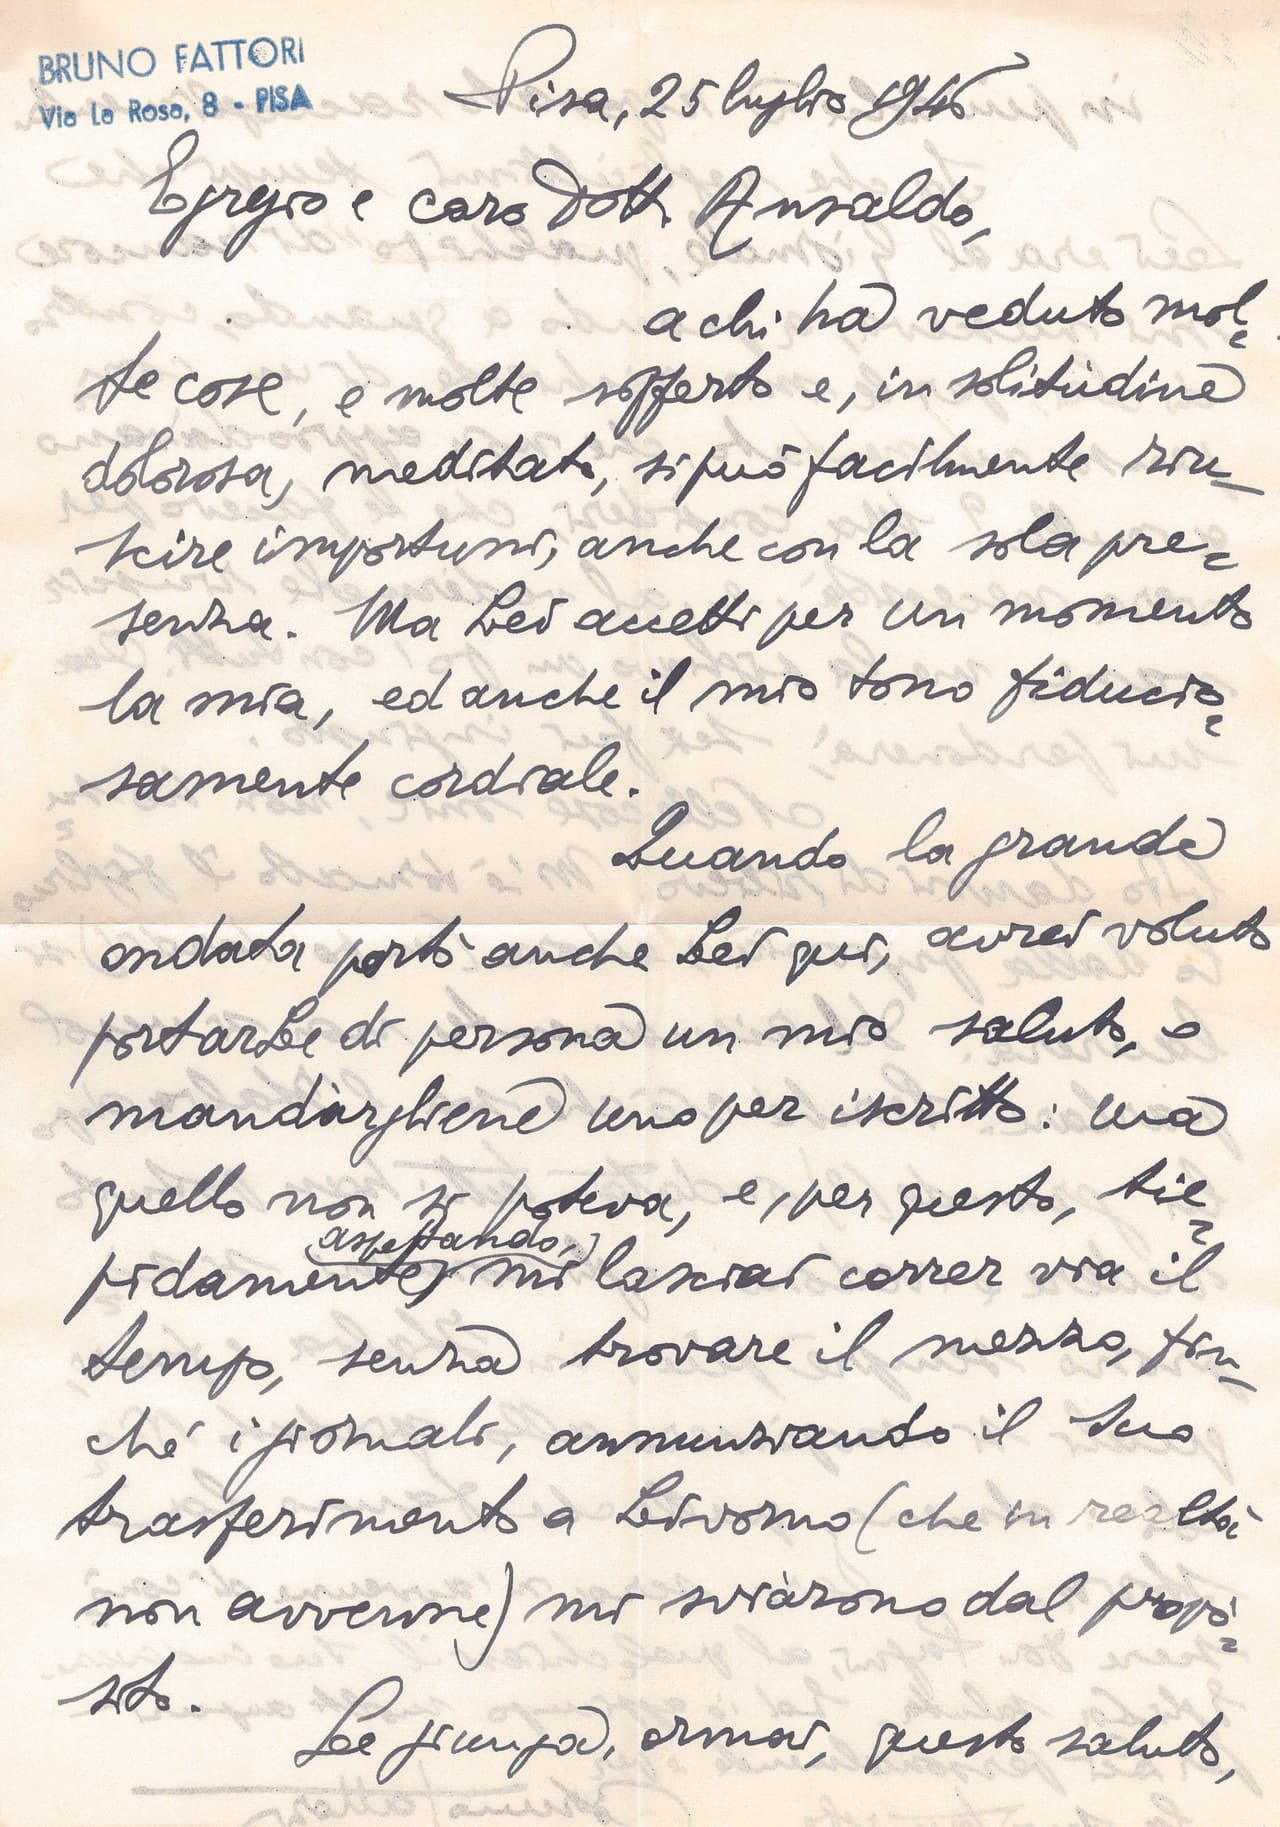 BRUNO FATTORI
Via La Rosa, 8 - PISA
Pisa, 25 luglio 1946
Egregio e caro Dott. Ansaldo,
a chi ha veduto mol=
te cose, e molte sofferto e, in solitùdine
dolorosa, meditato, si può facilmente riu-
scire importuni, anche con la sola pre=
senza. Ma Lei accetti per un momento
la mia, ed anche il mio tono fiducio=
samente cordiale.
Quando la grande
ondata portò anche Lei qui, avrei voluto
portarLe di persona un mio saluto, o
mandàrgliene uno per iscritto: ma
quello non si poteva, e, per questo, tie=
(aspettando,)
pidamente, mi lasciai correr via il
tempo, senza trovare il mezzo, fin-
ché i giornali, annunziando il Suo
trasferimento a Livorno (che in realtà
non avvenne) mi sviàrono dal propò=
sito.
Le giunga, ormai, questo saluto,